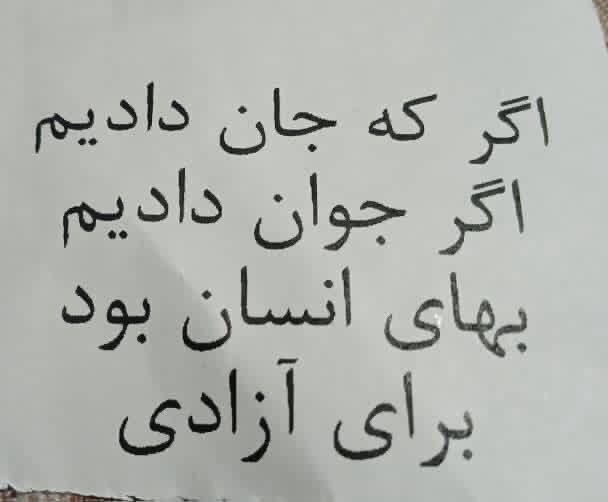 اگر که جان دادیم
اگر جوان دادیم
بهای انسان بود
برای آزادی